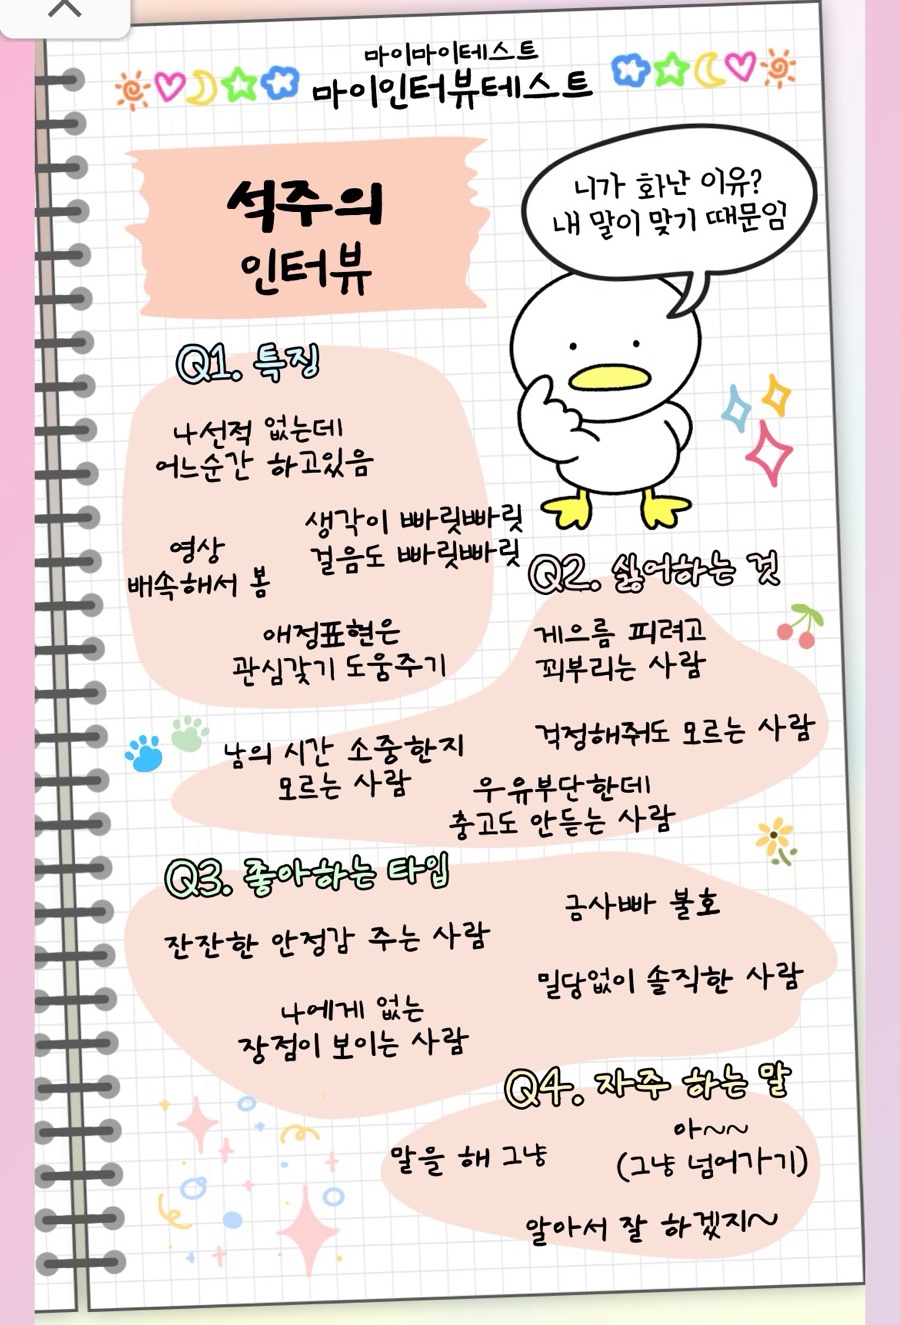 마이마이테스트
마이인터뷰테스트
석주의
인터뷰
니가 화난 이유?
내 말이 맞기 때문임
Q1. 특징
나선적 없는데
어느순간 하고있음
생각이 빠릿빠릿
걸음도 빠릿빠릿
영상
배속해서 봄
애정표현은
관심갖기 도움주기
Q2. 싫어하는 것
게으름 피려고
꾀부리는 사람
걱정해줘도 모르는 사람
남의 시간 소중한지
모르는 사람
우유부단한데
충고도 안듣는 사람
Q3. 좋아하는 타입
금사빠 불호
잔잔한 안정감 주는 사람
밀당없이 솔직한 사람
나에게 없는
장점이 보이는 사람
Q4. 자주 하는 말
말을 해 그냥
아~~
(그냥 넘어가기)
알아서 잘 하겠지~